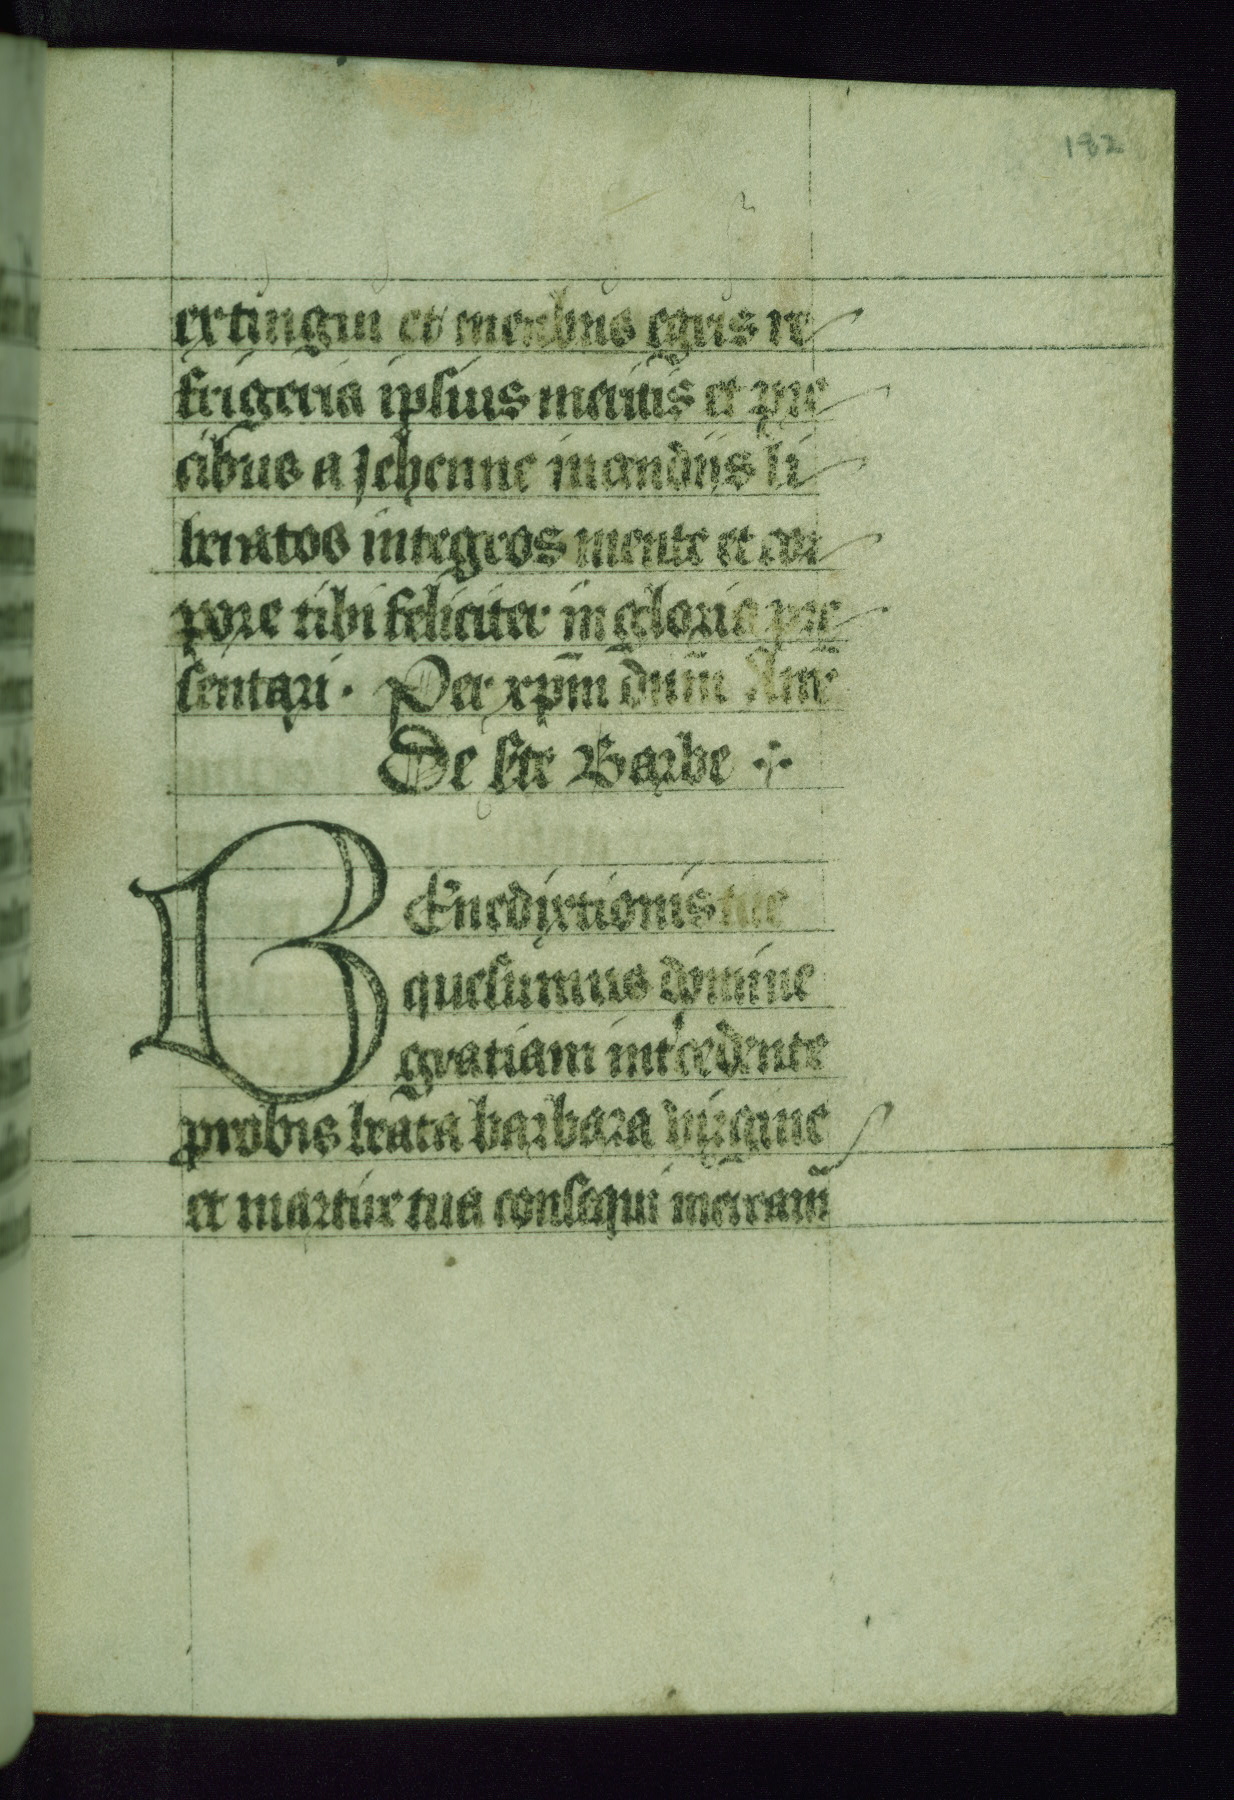 182
extingui et membris egris re
frigeria ipsius meritis et pre
cibus a Jehenne incendiis li
beratos integros mente et cor
pore tibi feliciter in gloria pre
sentari. Per xp̄m dnm̄ Ame
De ste Barbe
BEnedixtionis tue
quesumus domine
gratiam int'cedente
probis beata barbara virgine
et martire tua consequi meream̄